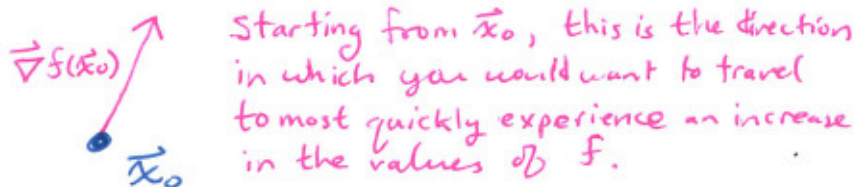 Starting from x⃗₀, this is the direction
∇⃗f(x⃗₀) in which you would want to travel
to most quickly experience an increase
x⃗₀ in the values of f.